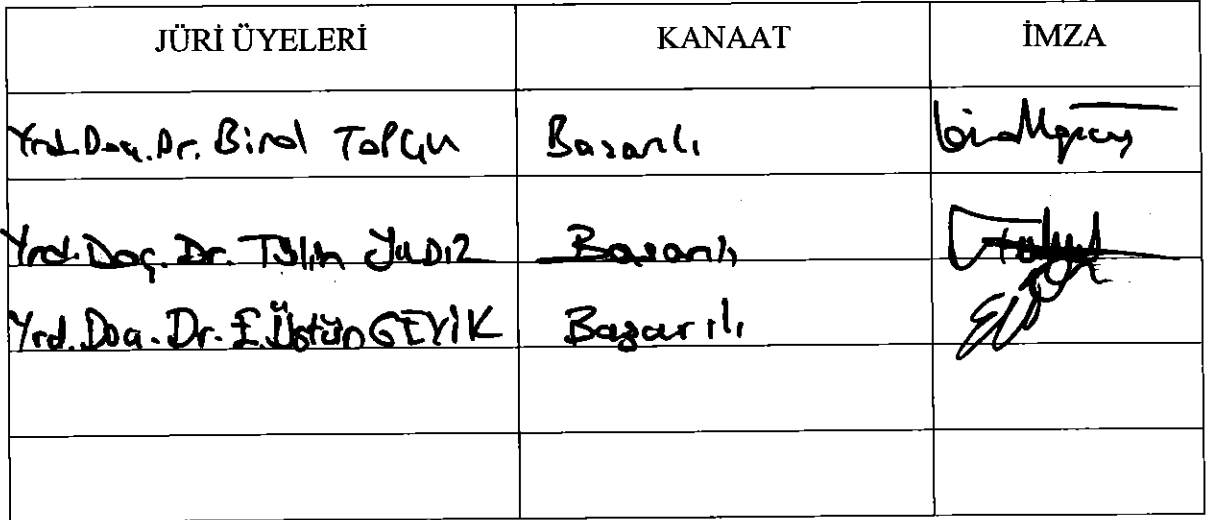 JÜRİ ÜYELERİ KANAAT İMZA
Yrd.Doç.Dr. Birol TOPÇU Başarılı
Yrd.Doç.Dr. Başarılı
Yrd.Doç.Dr. E.Üstün GEYİK Başarılı